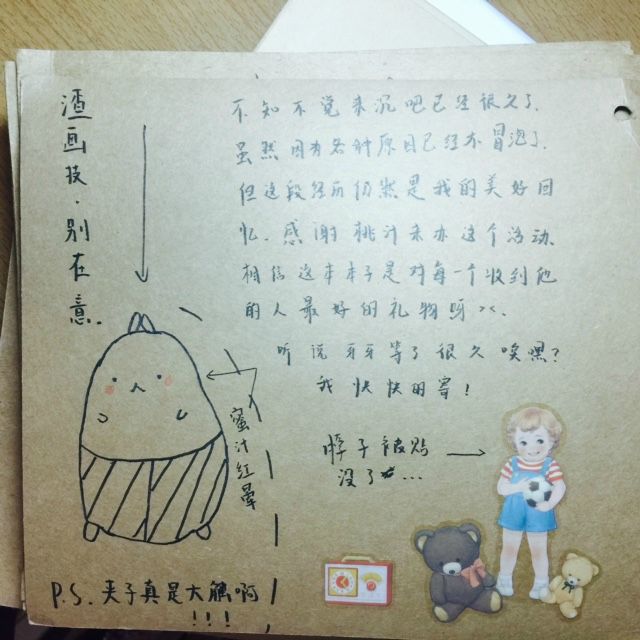 渣画技·别在意。
不知不觉来沉吧已经很久了.
虽然因有各种原因已经不冒泡了.
但这段经历仍然是我的美好回
忆.感谢桃汁来办这个活动
相信这本本子是对每一个收到他
的人最好的礼物呀××.
听说牙牙等了很久唉嘿?
我快快的寄!
蜜汁红晕
脖子被贴
没了…
P.S.夹子真是大触啊
!!!